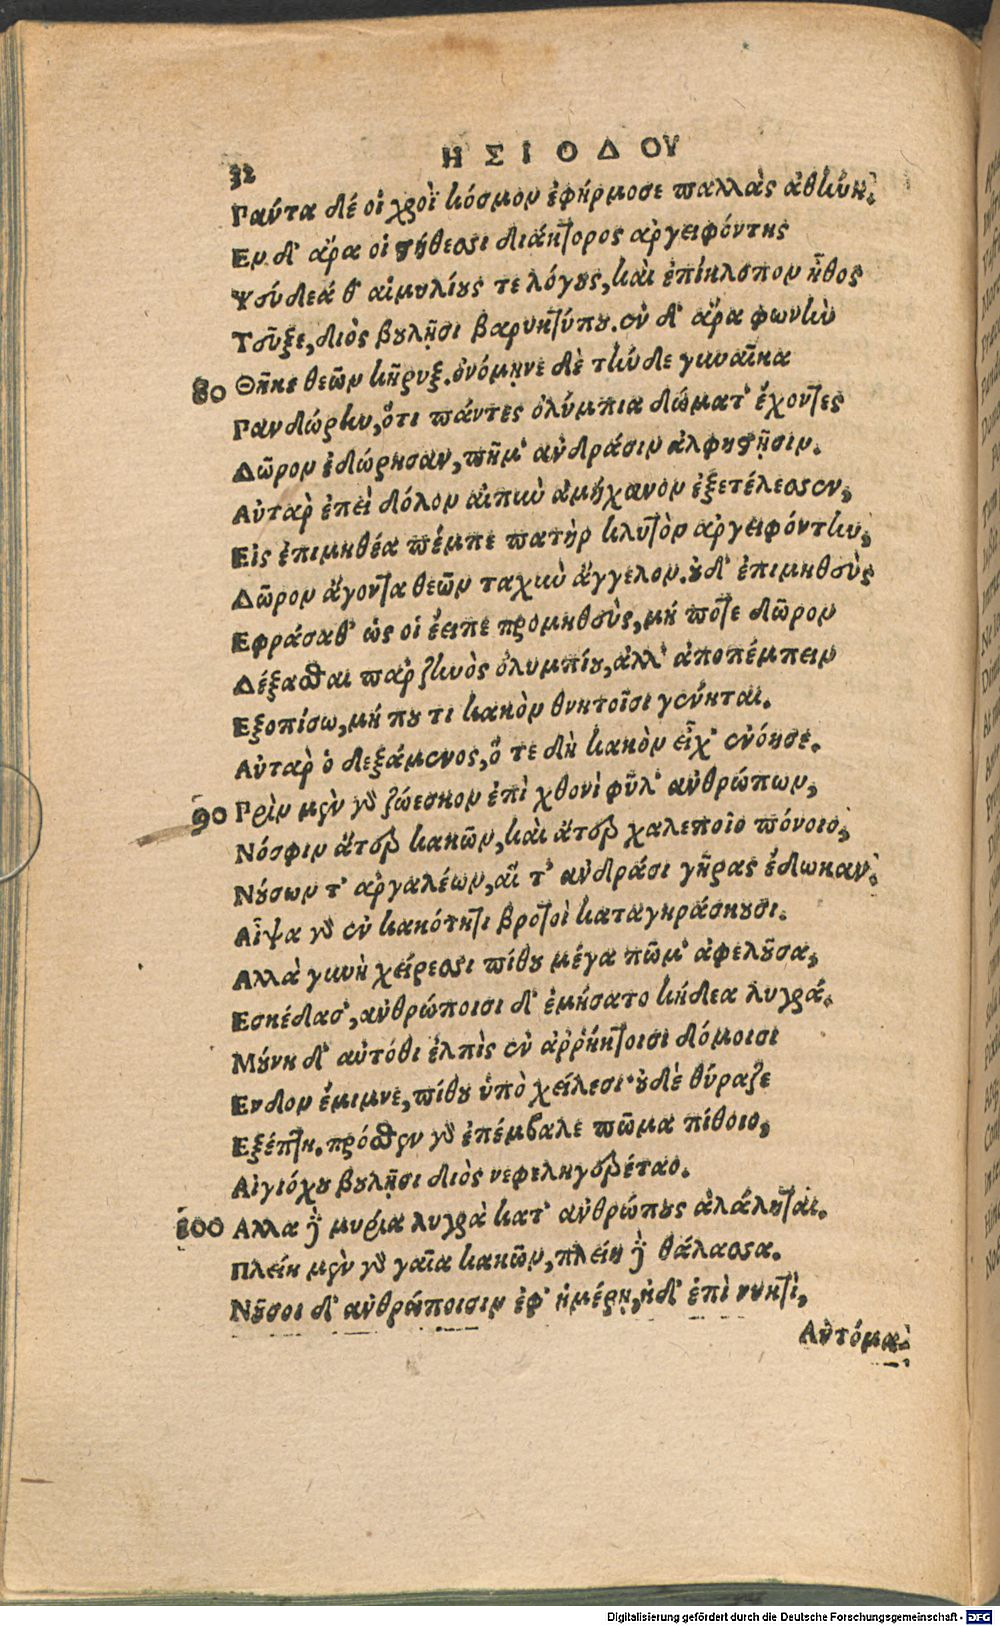 32
ΗΣΙΟΔΟΥ
Πάντα δέ οἱ χροῒ κόσμον ἐφήρμοσε παλλὰς ἀθήνη.
Εν δ' ἄρα οἱ στήθεσσι διάκτορος ἀργειφόντης
Ψεύδεά θ' αἱμυλίους τε λόγους, καὶ ἐπίκλοπον ἦθος
Τεῦξε, διὸς βουλῇσι βαρυκτύπου. ἐν δ' ἄρα φωνὴν
80 Θῆκε θεῶν κῆρυξ. ὀνόμηνε δὲ τήνδε γυναῖκα
Πανδώρην, ὅτι πάντες ὀλύμπια δώματ' ἔχοντες
Δῶρον ἐδώρησαν, πῆμ' ἀνδράσιν ἀλφηστῇσιν.
Αὐτὰρ ἐπεὶ δόλον αἰπὺν ἀμήχανον ἐξετέλεσσεν,
Εἰς ἐπιμηθέα πέμπε πατὴρ κλυτὸν ἀργειφόντην,
Δῶρον ἄγοντα θεῶν ταχὺν ἄγγελον. οὐδ' ἐπιμηθεὺς
Εφράσαθ' ὥς οἱ ἔειπε προμηθεὺς, μή ποτε δῶρον
Δέξασθαι παρ ζηνὸς ὀλυμπίου, ἀλλ' ἀποπέμπειν
Εξοπίσω, μή που τι κακὸν θνητοῖσι γένηται.
Αὐτὰρ ὁ δεξάμενος, ὅτε δὴ κακὸν εἶχ' ἐνόησε.
90 Πρὶν μὲν γὰρ ζώεσκον ἐπὶ χθονὶ φῦλ' ἀνθρώπων,
Νόσφιν ἄτερ κακῶν, καὶ ἄτερ χαλεποῖο πόνοιο,
Νούσων τ' ἀργαλέων, αἵ τ' ἀνδράσι γῆρας ἔδωκαν.
Αἶψα γὰρ ἐν κακότητι βροτοὶ καταγηράσκουσι.
Αλλὰ γυνὴ χείρεσσι πίθου μέγα πῶμ' ἀφελοῦσα,
Εσκέδασ', ἀνθρώποισι δ' ἐμήσατο κήδεα λυγρά.
Μούνη δ' αὐτόθι ἐλπὶς ἐν ἀῤῥήκτοισι δόμοισι
Ενδον ἔμιμνε, πίθου ὑπὸ χείλεσι· οὐδὲ θύραζε
Εξέπτη. πρόσθεν γὰρ ἐπέμβαλε πῶμα πίθοιο,
Αἰγιόχου βουλῇσι διὸς νεφεληγερέταο.
100 Αλλα δὲ μυρία λυγρὰ κατ' ἀνθρώπους ἀλάληται.
Πλείη μὲν γὰρ γαῖα κακῶν, πλείη δὲ θάλασσα.
Νοῦσοι δ' ἀνθρώποισιν ἐφ' ἡμέρῃ, ἠδ' ἐπὶ νυκτὶ,
Αὐτόμα-
Digitalisierung gefördert durch die Deutsche Forschungsgemeinschaft - DFG